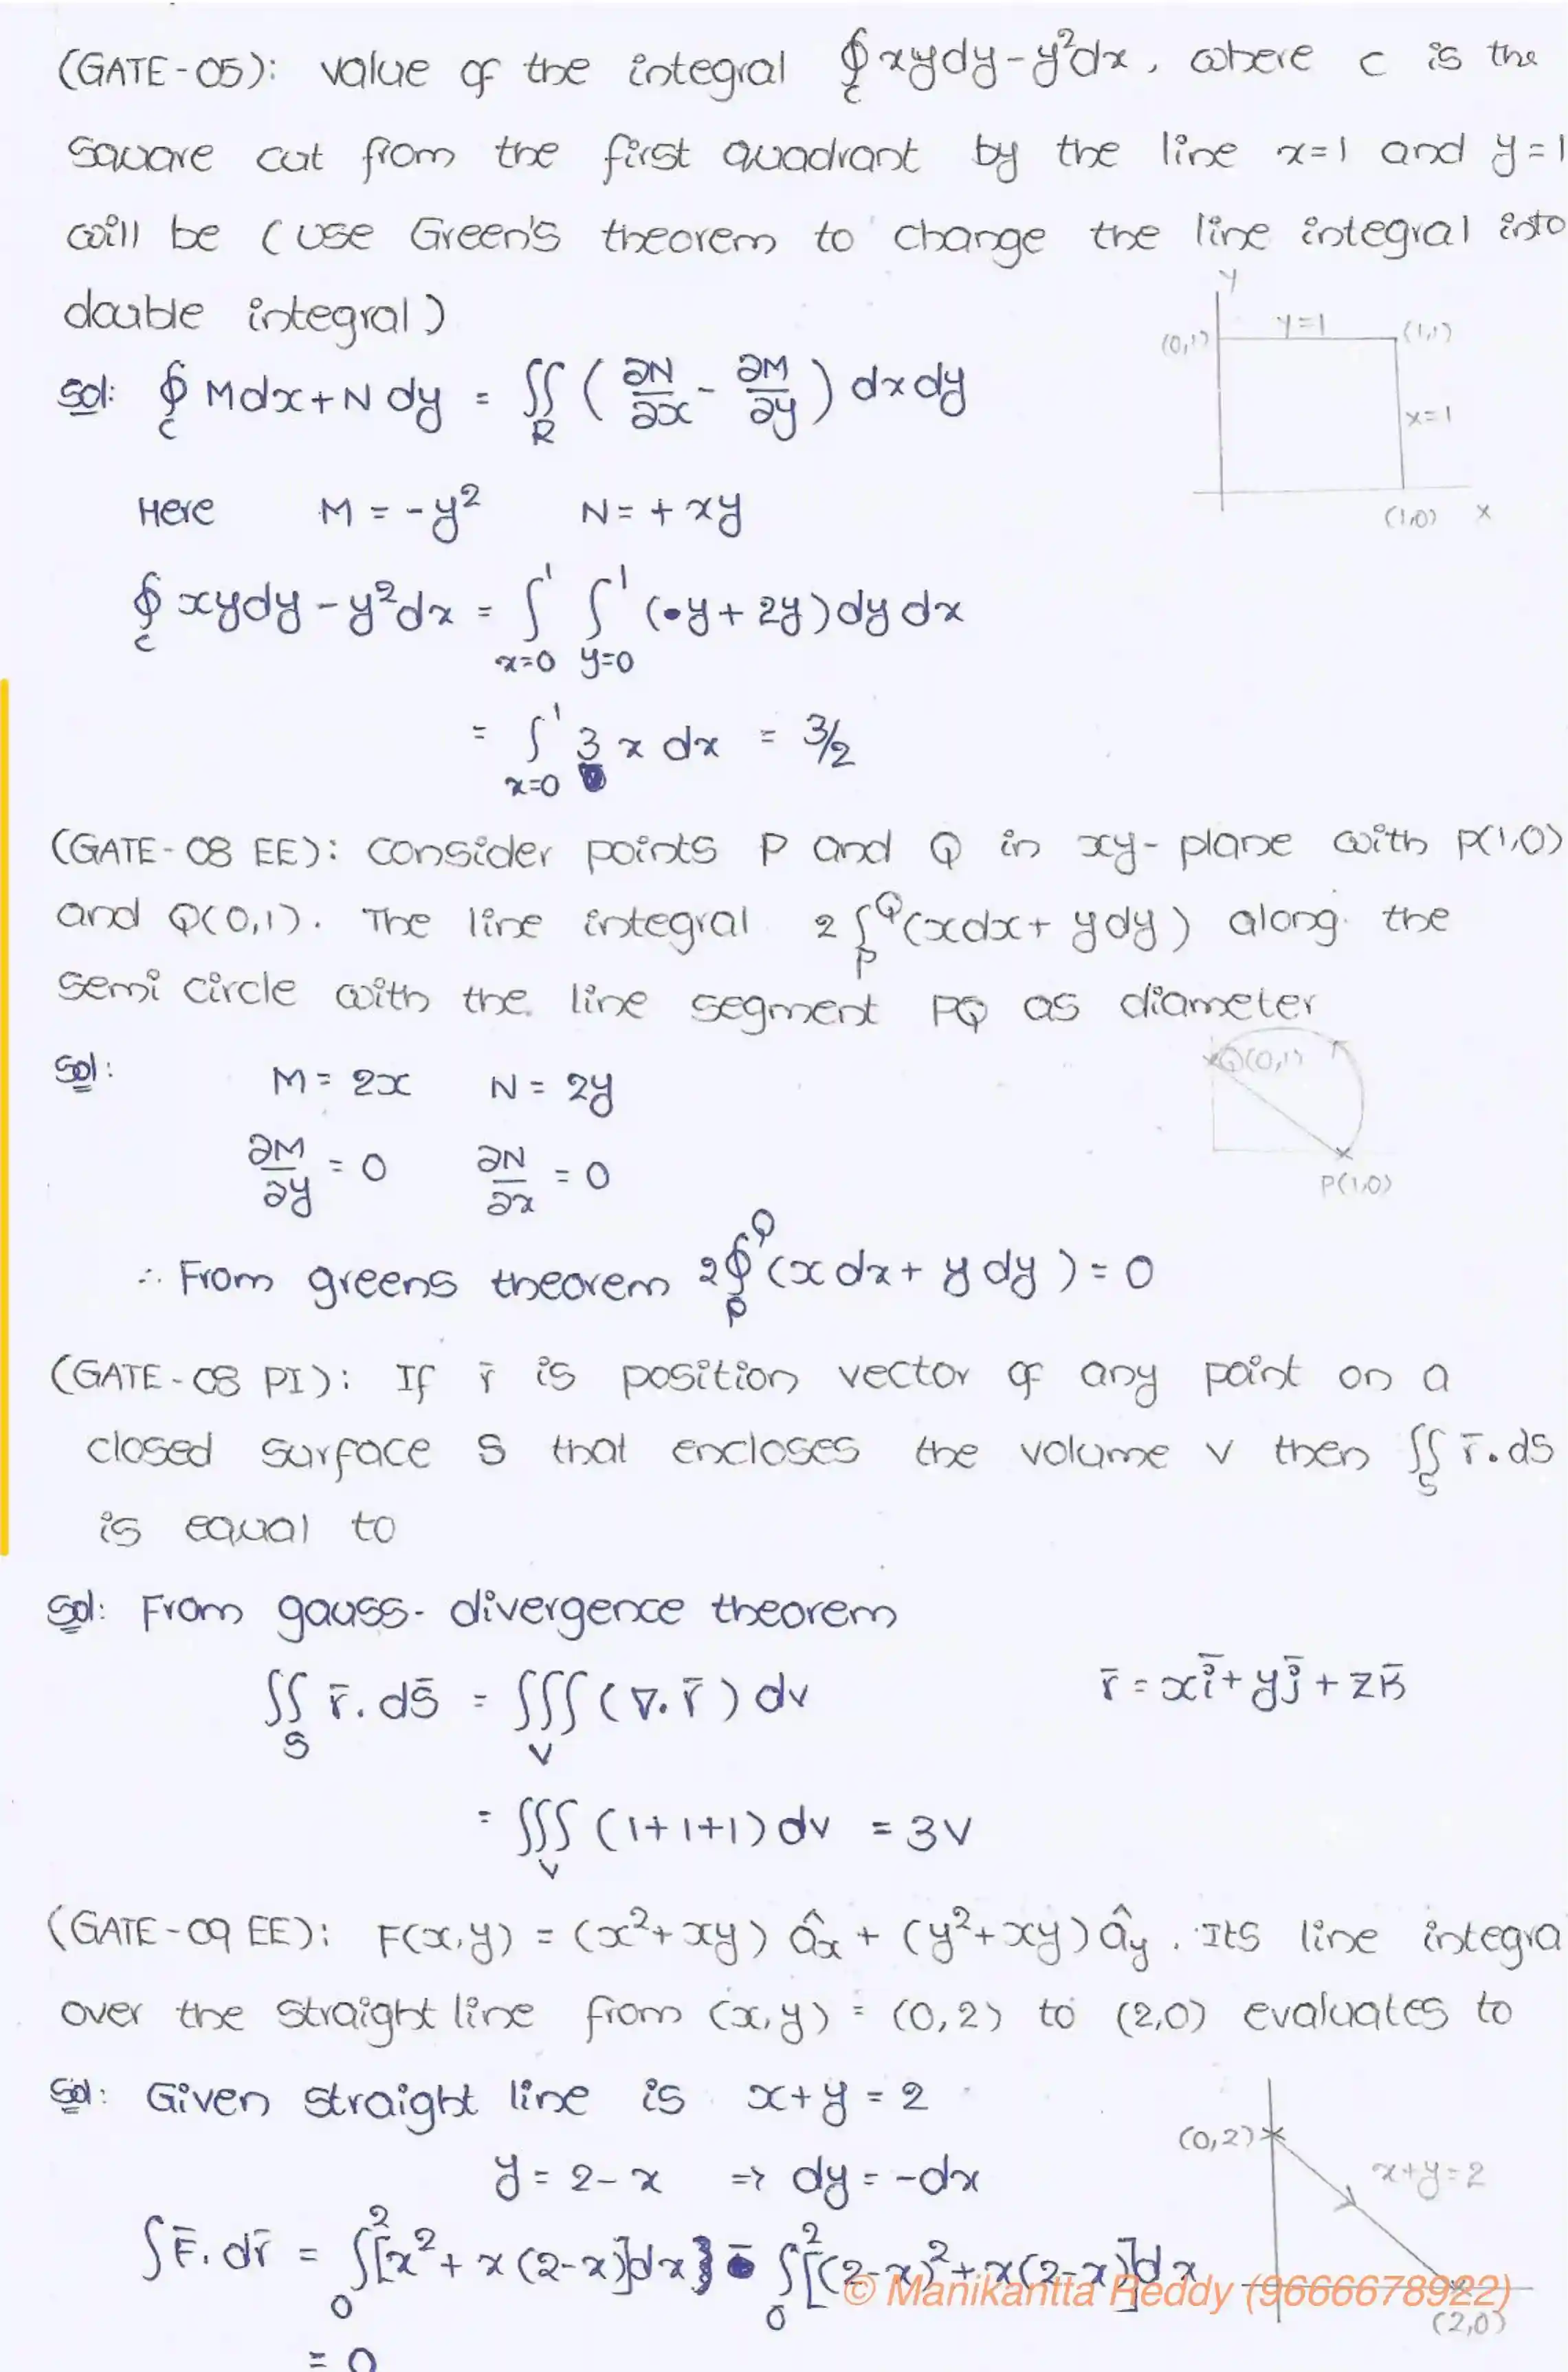 (GATE-05): value of the integral ∮_C xydy-y²dx, where c is the
square cut from the first quadrant by the line x=1 and y=1
will be (use Green's theorem to change the line integral into
double integral)
y
y=1
(0,1)
(1,1)
x=1
(1,0) x
Sol: ∮_C Mdx+N dy = ∬_R (∂N/∂x - ∂M/∂y) dxdy
Here M = -y² N = + xy
∮_C xydy-y²dx = ∫_{x=0}^1 ∫_{y=0}^1 (y+2y)dy dx
= ∫_{x=0}^1 3 x dx = 3/2
(GATE-08 EE): consider points P and Q in xy-plane with P(1,0)
and Q(0,1). The line integral 2∫_P^Q(xdx+ ydy) along the
semi circle with the line segment PQ as diameter
Q(0,1)
P(1,0)
Sol: M = 2x N = 2y
∂M/∂y = 0 ∂N/∂x = 0
∴ From greens theorem 2∮_P^Q(x dx+ y dy) = 0
(GATE-08 PI): If r̄ is position vector of any point on a
closed surface S that encloses the volume v then ∬_S r̄.ds
is equal to
Sol: From gauss-divergence theorem
∬_S r̄.ds̄ = ∭_V (∇.r̄) dv r̄ = xī+yj̄+zk̄
= ∭_V (1+1+1) dv = 3V
(GATE-09 EE): F(x,y) = (x²+xy) âx + (y²+xy) ây. Its line integra
over the straight line from (x,y) = (0,2) to (2,0) evaluates to
Sol: Given straight line is x+y = 2
(0,2)
x+y=2
(2,0)
y = 2-x ⇒ dy = -dx
∫F̄.dr̄ = ∫_0^2[x²+x(2-x)]dx} - ∫_0^2[(2-x)²+x(2-x)]dx
© Manikantta Reddy (9666678922)
= 0